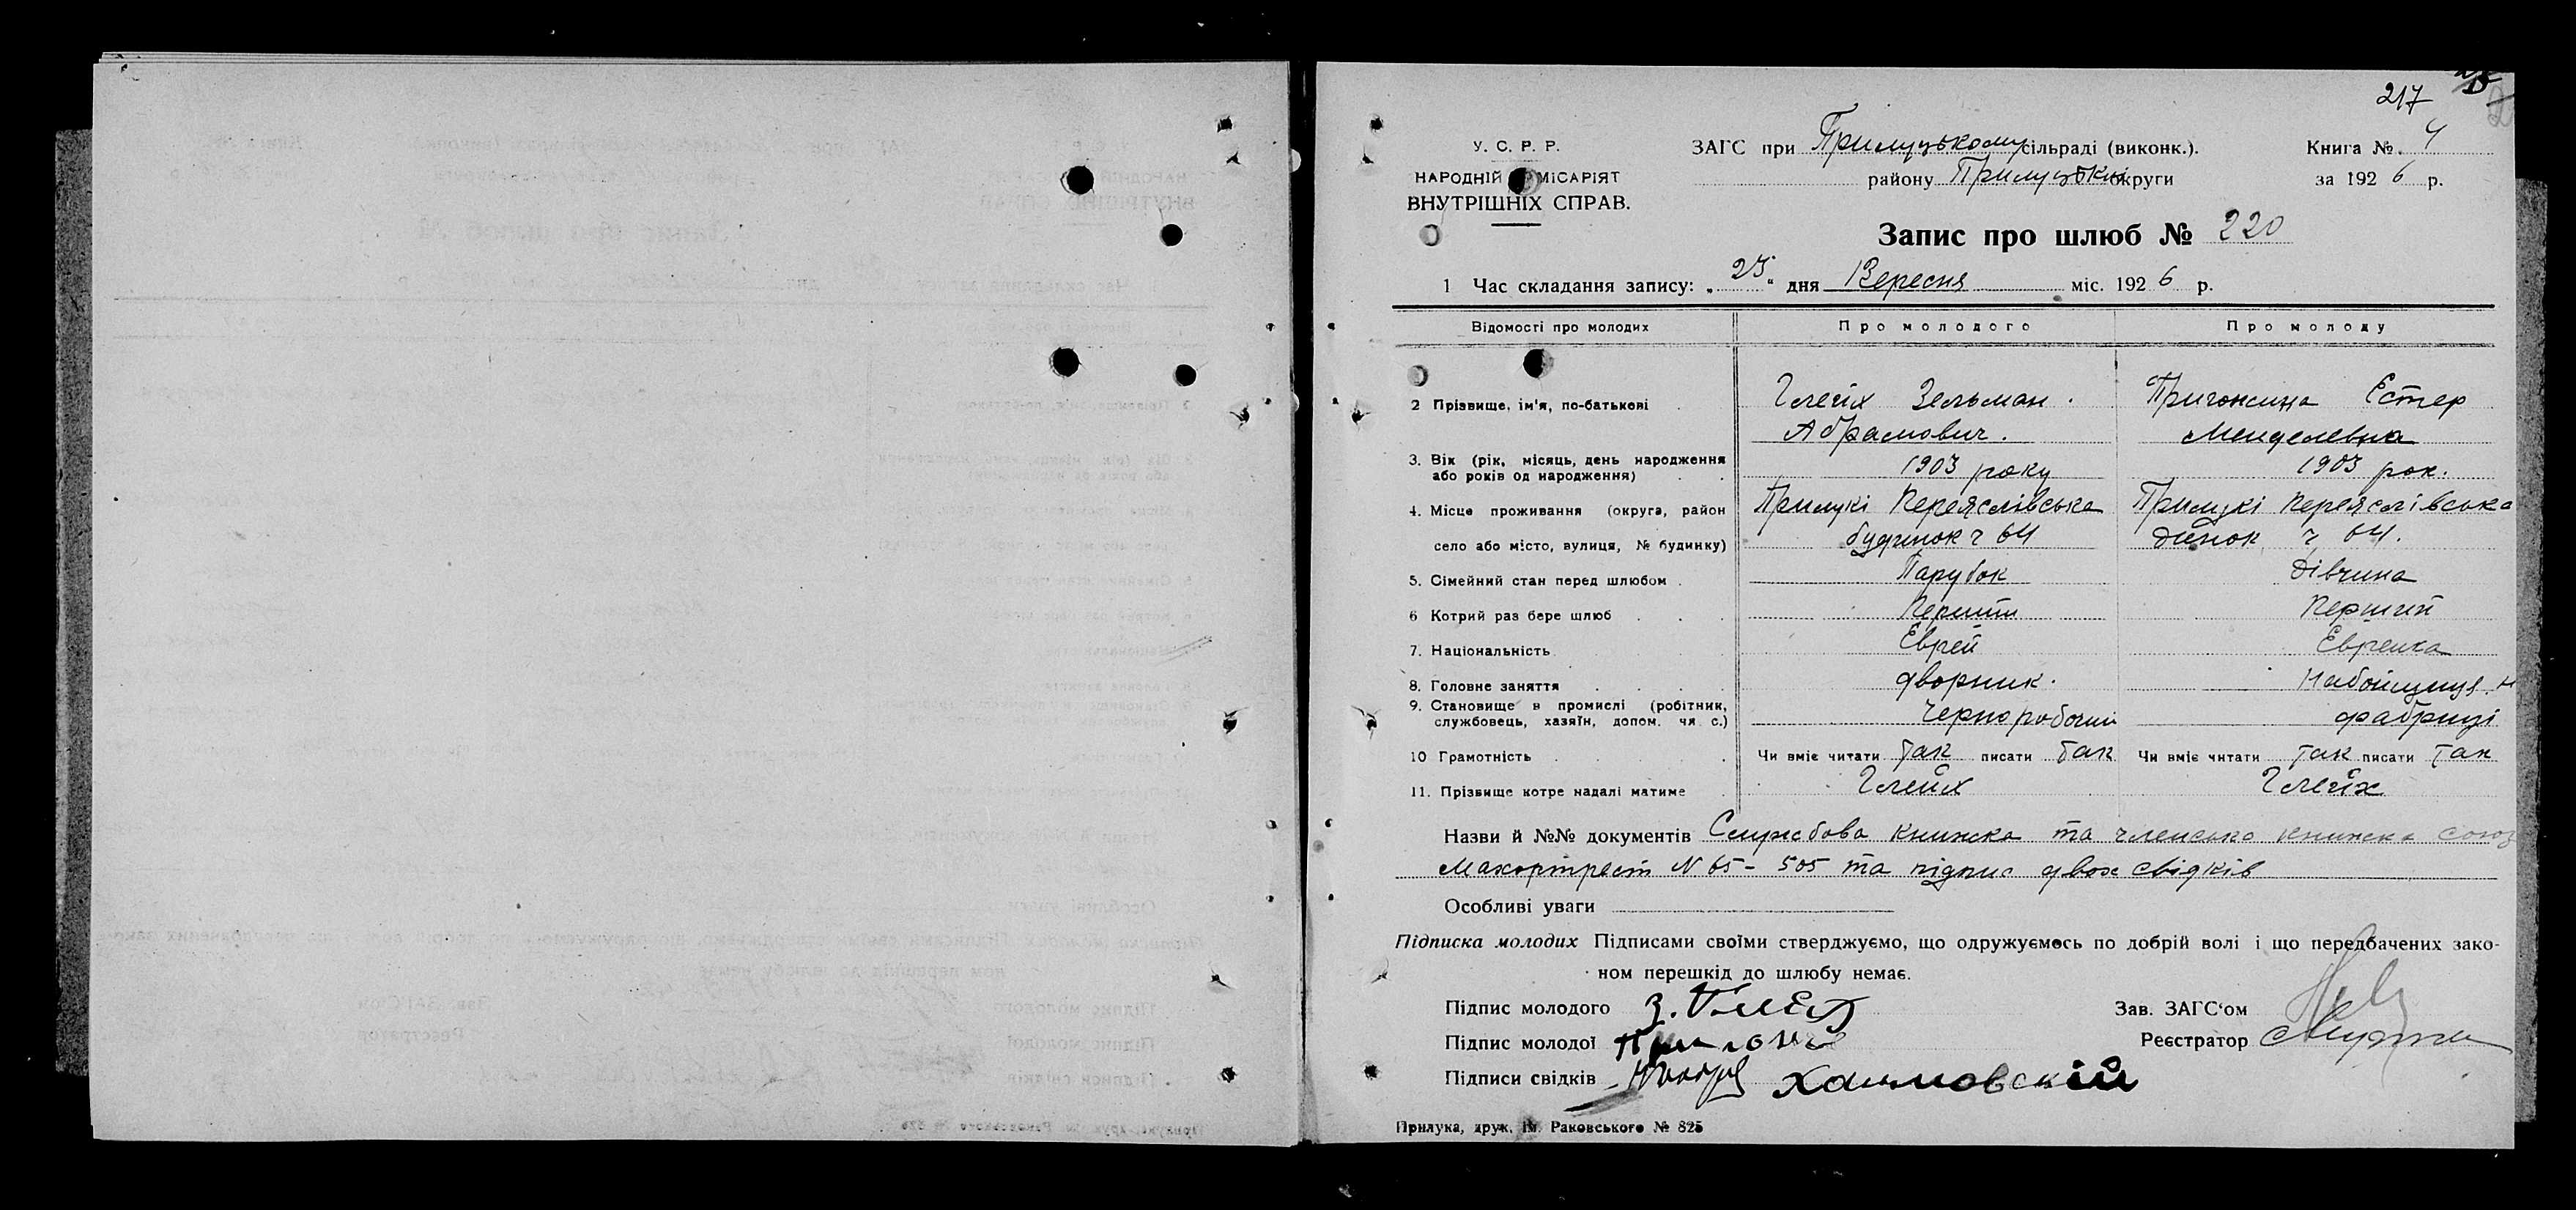 217
У. С. Р. Р.
НАРОДНІЙ КОМІСАРІЯТ
ВНУТРІШНІХ СПРАВ.
ЗАГС при Прилуцькому сільраді (виконк.).
району Прилуцької округи
Книга № 4
за 1926 р.
Запис про шлюб № 220
1 Час складання запису: „25“ дня Вересня міс. 1926 р.
Відомості про молодих Про молодого Про молоду
2 Прізвище, ім'я, по-батькові Глейх Зельман Пригонсина Естер
Абрамович. Менделевна
3. Вік (рік, місяць, день народження або років од народження) 1903 року 1903 рок.
4. Місце проживання (округа, район Прилукі Переяслівська Прилукі Переяслівська
село або місто, вулиця, № будинку) будинок ч 64 динок ч 64.
5. Сімейний стан перед шлюбом Парубок Дівчина
6 Котрий раз бере шлюб Перший Перший
7. Національність Еврей Еврейка
8. Головне заняття дворник.
9. Становище в промислі (робітник, службовець, хазяїн, допом. чл с.) Чернорабочий фабриці
10 Грамотність Чи вміє читати так писати так Чи вміє читати так писати так
11. Прізвище котре надалі матиме Глейх Глейх
Назви й №№ документів Службова книжка та членська книжка союз
Махортрест N 65 - 505 та підпис двох свідків
Особливі уваги
Підписка молодих Підписами своїми стверджуємо, що одружуємось по добрій волі і що передбачених зако-
ном перешкід до шлюбу немає.
Підпис молодого З. Глейх Зав. ЗАГС'ом
Підпис молодої Реєстратор
Підписи свідків Хаимовскій
Прилука, друк. ім. Раковського № 825